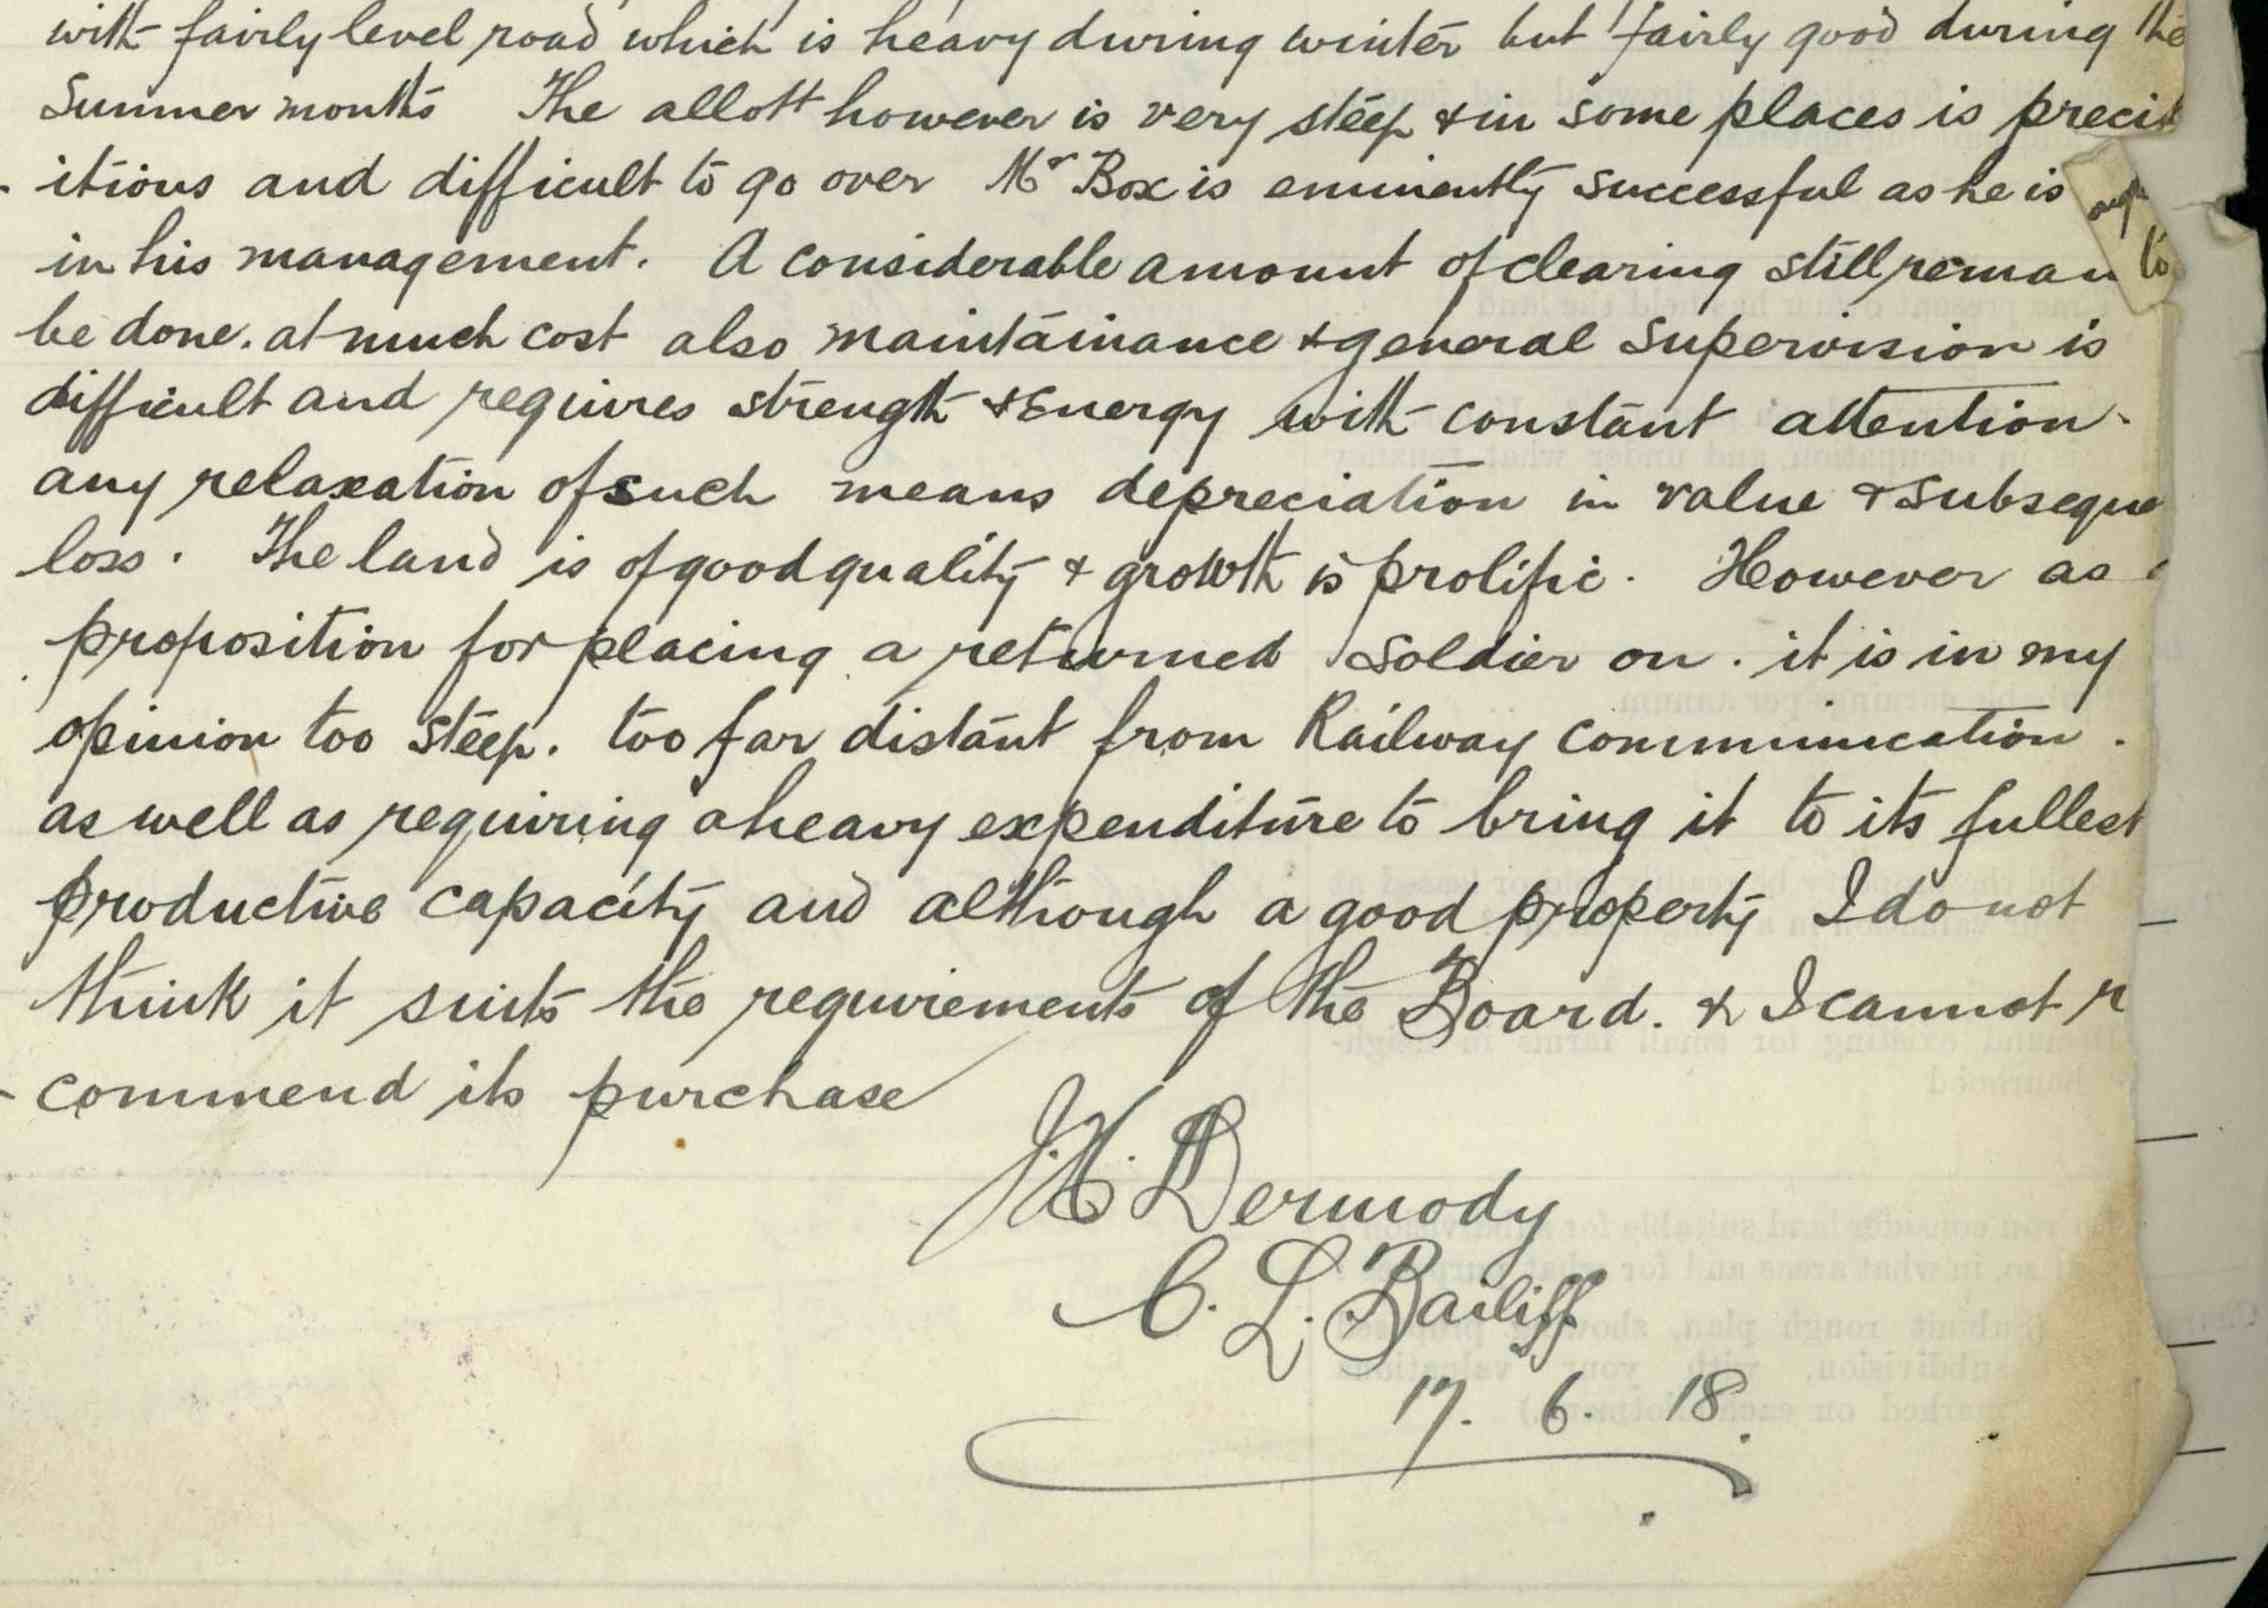 with fairly level road which is heavy during winter but fairly good during the
Summer months The allott however is very steep & in some places is precip
- itious and difficult to go over Mr Box is eminently successful as he is
in his management. A considerable amount of clearing still remain to
be done. at much cost also maintainance & general supervision is
difficult and requires strength & Energy with constant attention.
any relaxation of such means depreciation in value & subseque
loss. The land is of good quality & growth is prolific. However as
proposition for placing a returned soldier on. it is in my
opinion too steep. too far distant from Railway communication.
as well as requiring a heavy expenditure to bring it to its fullest
productive capacity and although a good property I do not
think it suits the requirements of the Board. & I cannot r
- commend its purchase
J.H. Dermody
C. L. Bailiff
17. 6. 18.